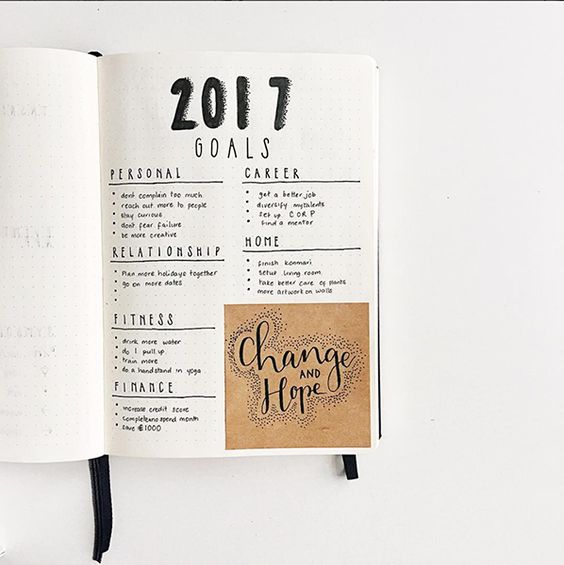 2017
GOALS
PERSONAL
dont complain too much
reach out more to people
stay curious
don't fear failure
be more creative
RELATIONSHIP
Plan more holidays together
go on more dates
FITNESS
drink more water
do 1 pull up
train more
do a handstand in yoga
FINANCE
increase credit score
complete no spend month
save £1000
CAREER
get a better job
diversify my talents
set up CORP
find a mentor
HOME
finish konmari
setup living room
take better care of plants
more artwork on walls
Change
AND
Hope